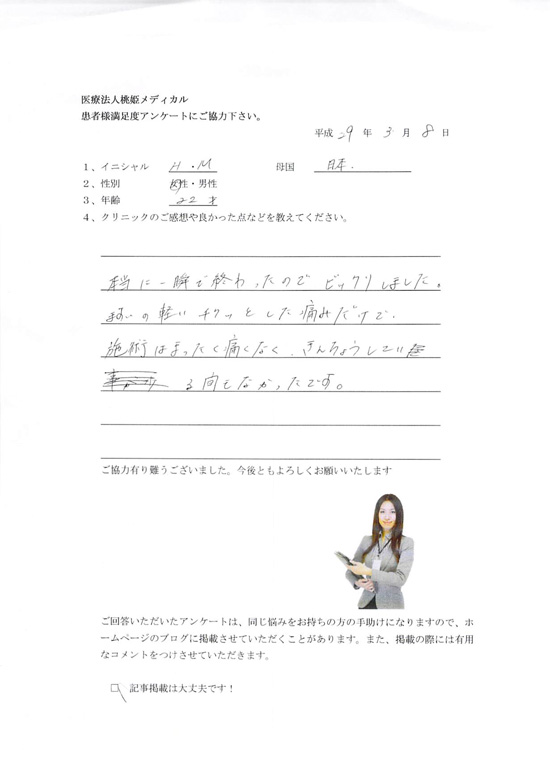 医療法人桃姫メディカル
患者様満足度アンケートにご協力下さい。
平成 29 年 3 月 8 日
1、イニシャル H・M 母国 日本.
2、性別 女性・男性
3、年齢 22才
4、クリニックのご感想や良かった点などを教えてください。
本当に一瞬で終わったので ビックリしました。
の軽い チクッと した痛みだけで、
施術はまったく痛くなく、きんちょうしてい
る間もなかったです。
ご協力有り難うございました。今後ともよろしくお願いいたします
ご回答いただいたアンケートは、同じ悩みをお持ちの方の手助けになりますので、ホ
ームページのブログに掲載させていただくことがあります。また、掲載の際には有用
なコメントをつけさせていただきます。
□ 記事掲載は大丈夫です！